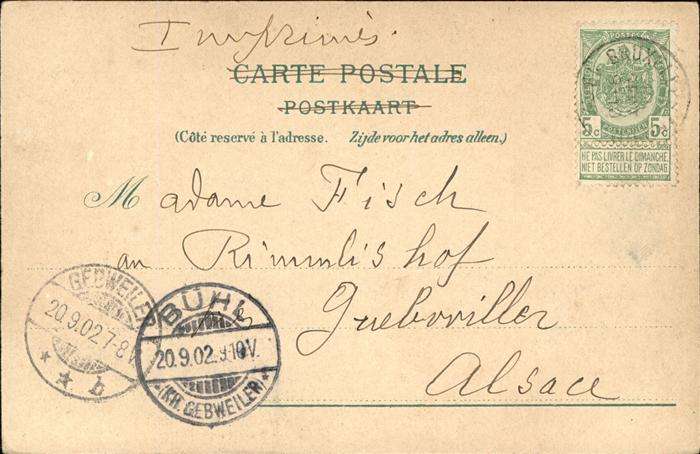 Imprimés
CARTE POSTALE
POSTKAART
(Côté reservé à l'adresse. Zijde voor het adres alleen.)
Madame Fisch
an Rimmlishof
Guebwiller
Alsace
5c 5c
NE PAS LIVRER LE DIMANCHE
NIET BESTELLEN OP ZONDAG
GEBWEILER
20.9.02.7-8V
* * b
BÜHL
20.9.02.9-10V.
*(KR. GEBWEILER)*